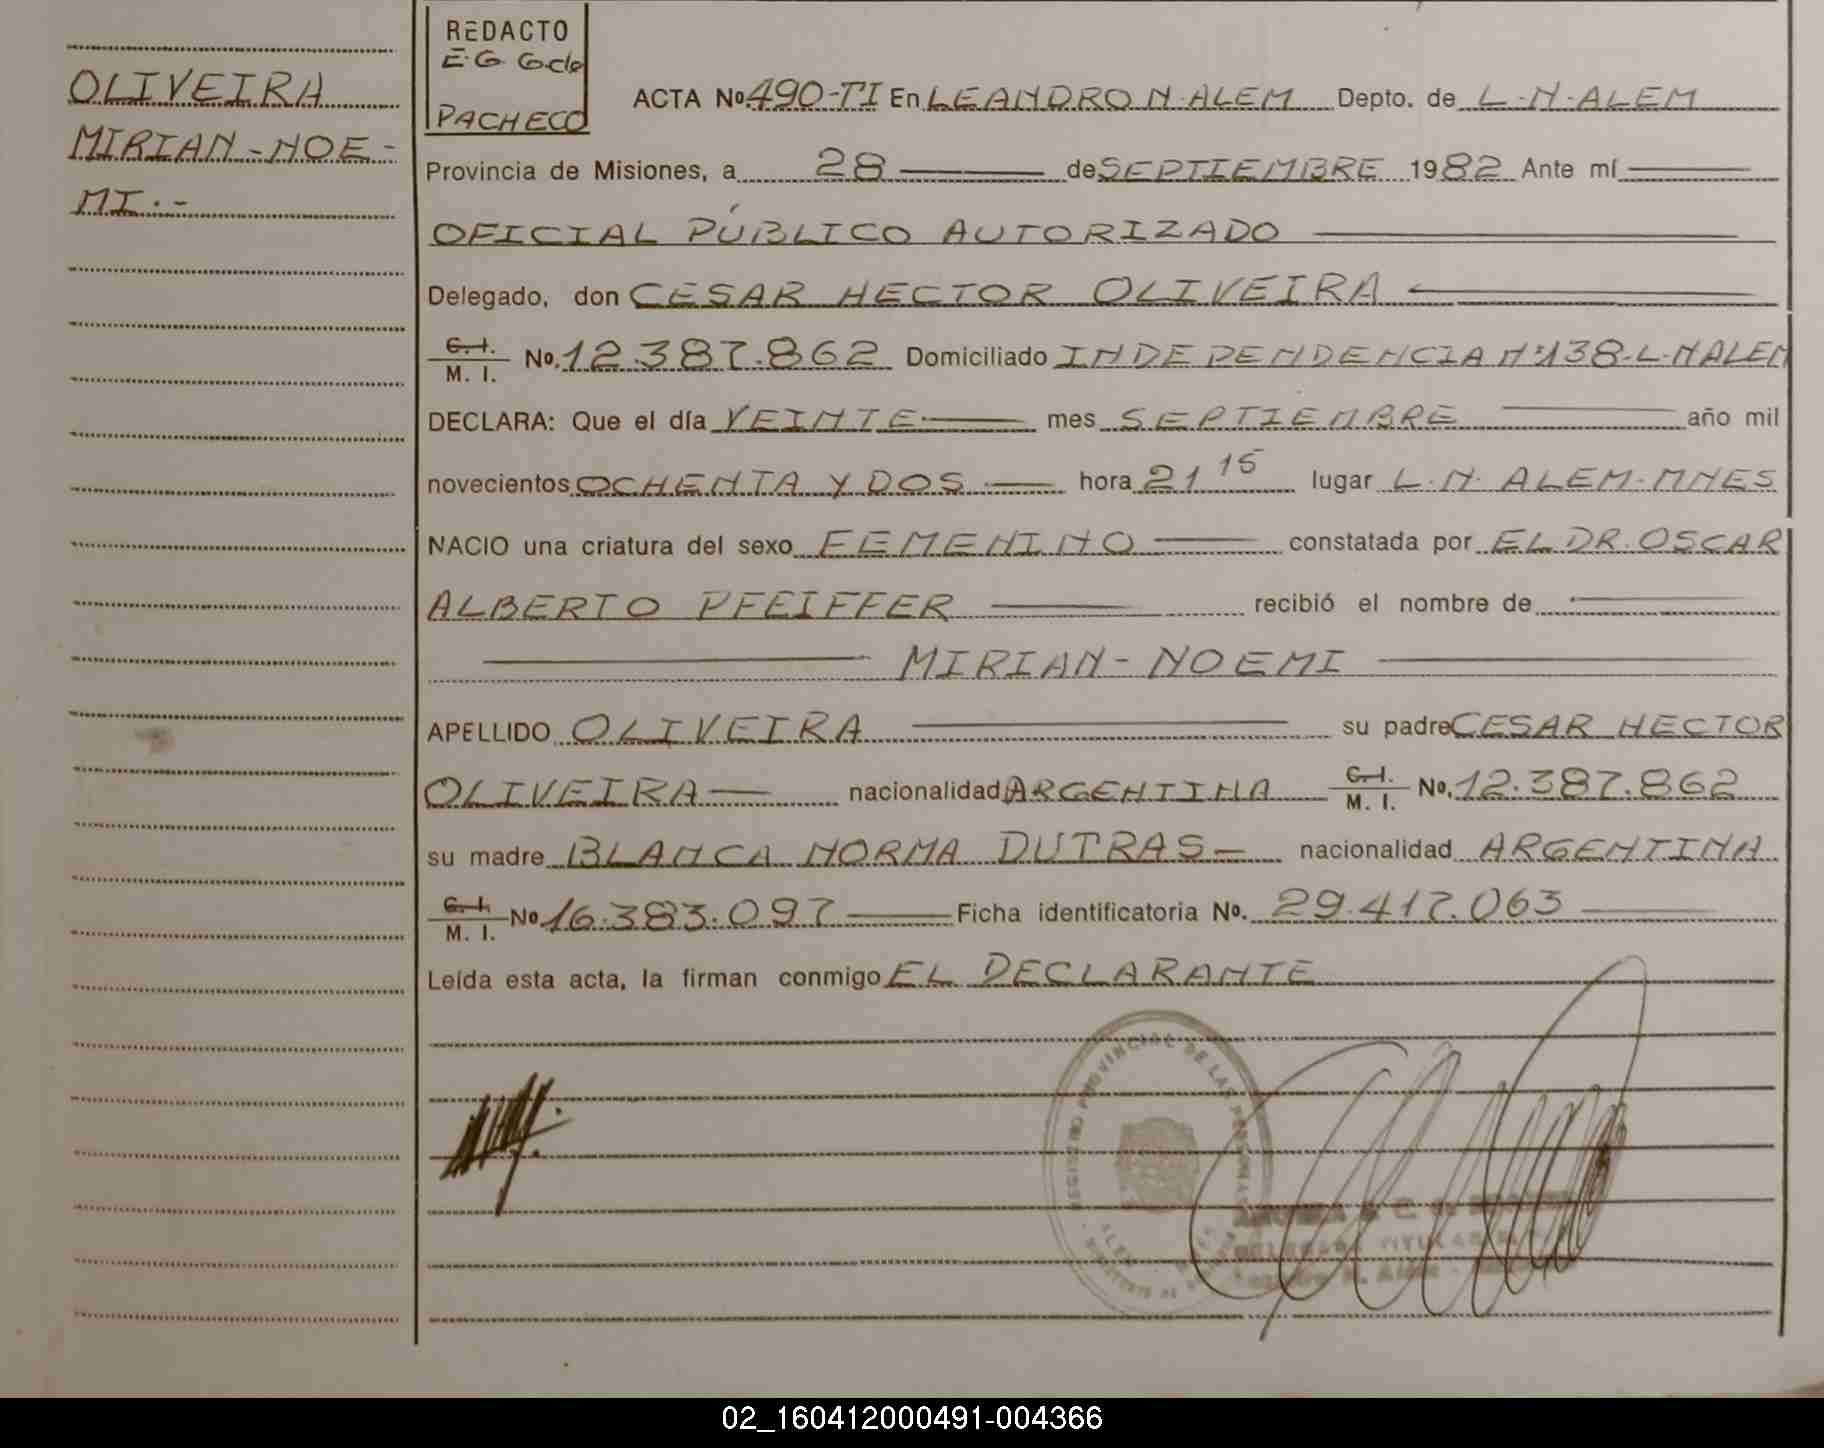 REDACTO
E.G.
PACHECO
OLIVEIRA
MIRIAN-NOE-
MI.-
ACTA No. 490-TI En LEANDRO N. ALEM Depto. de L-N-ALEM
Provincia de Misiones, a 28 de SEPTIEMBRE 1982 Ante mí
OFICIAL PÚBLICO AUTORIZADO
Delegado, don CESAR HECTOR OLIVEIRA
C. I.
M. I. No. 12.387.862 Domiciliado INDEPENDENCIA Nº138-L-N ALEM
DECLARA: Que el día VEINTE mes SEPTIEMBRE año mil
novecientos OCHENTA Y DOS hora 21 15 lugar L.N. ALEM-MNES
NACIO una criatura del sexo FEMENINO constatada por EL DR. OSCAR
ALBERTO PFEIFFER recibió el nombre de
MIRIAN-NOEMI
APELLIDO OLIVEIRA su padre CESAR HECTOR
OLIVEIRA nacionalidad ARGENTINA C. I. M. I. No. 12.387.862
su madre BLANCA NORMA DUTRAS nacionalidad ARGENTINA
C. I.
M. I. No 16.383.097 Ficha identificatoria No. 29.417.063
Leída esta acta, la firman conmigo EL DECLARANTE
REGISTRO PROVINCIAL DE LAS PERSONAS
02_160412000491-004366